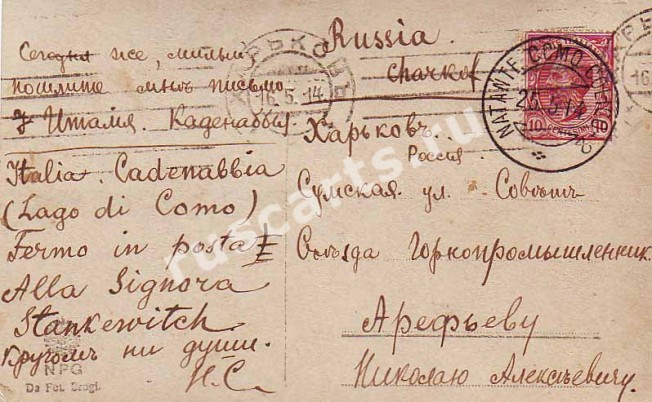 Сегодня же, милый
пошлите мнѣ письмо
Италия. Каденаббия
Italia. Cadenabbia
(Lago di Como)
Fermo in posta
Alla Signora
Stankewitch
Кругомъ ни души.
Н.С.
NPG
Da Fot. Brogi.
Russia.
Charkof
Харьковъ.
Россия.
Сумская ул. Совѣтъ
Съѣзда Горнопромышленник.
Арефьеву
Николаю Алексѣевичу.
ХАРЬКОВЪ
16.5.14
COMO
10
16.
ruscarts.ru